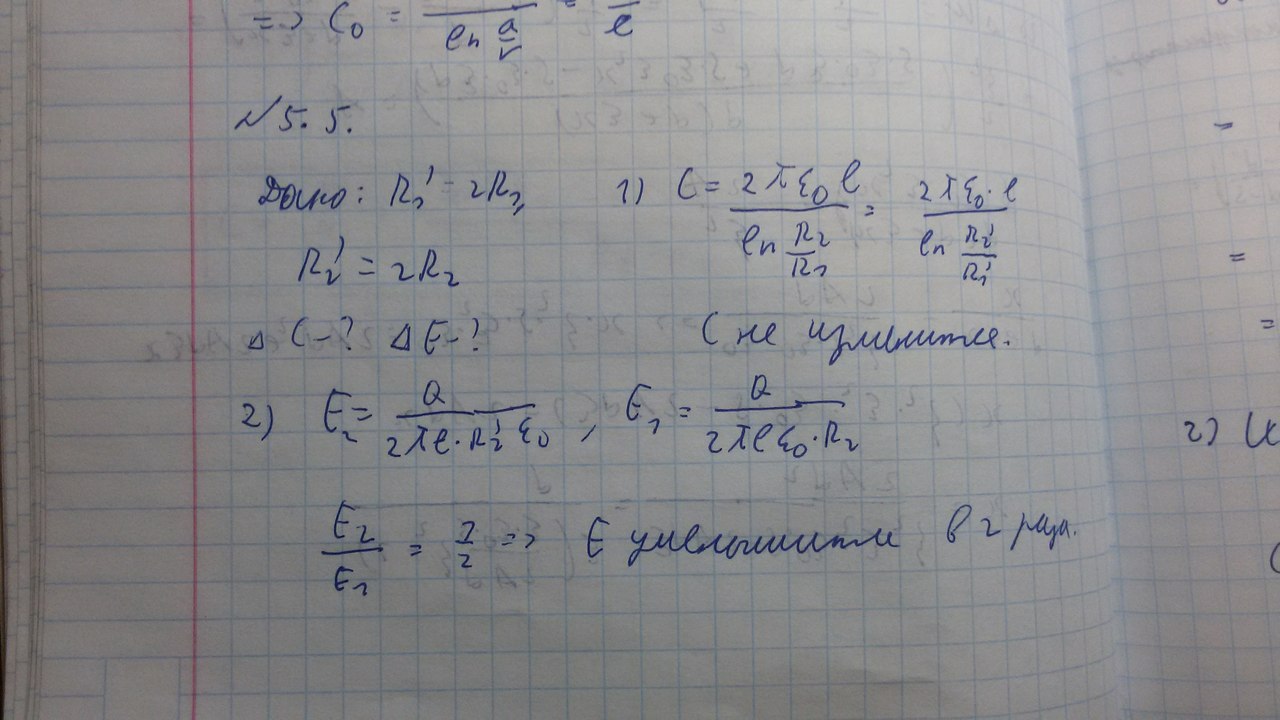 => C₀ = / ln a/r = / l
№ 5. 5.
Дано: R₁' = 2R₁, 1) C = 2πε₀l / ln R₂/R₁ = 2πε₀·l / ln R₂'/R₁'
R₂' = 2R₂
Δ C-? ΔE-? C не изменится.
2) E₂ = Q / 2πl·R₂'ε₀ , E₁ = Q / 2πlε₀·R₂
E₂/E₁ = 1/2 => E уменьшится в 2 раза.
2)